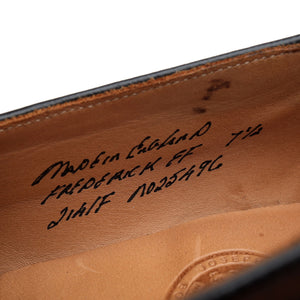 Made in England
FREDERICK FF 7½
2141F NO25496
JOSEPH